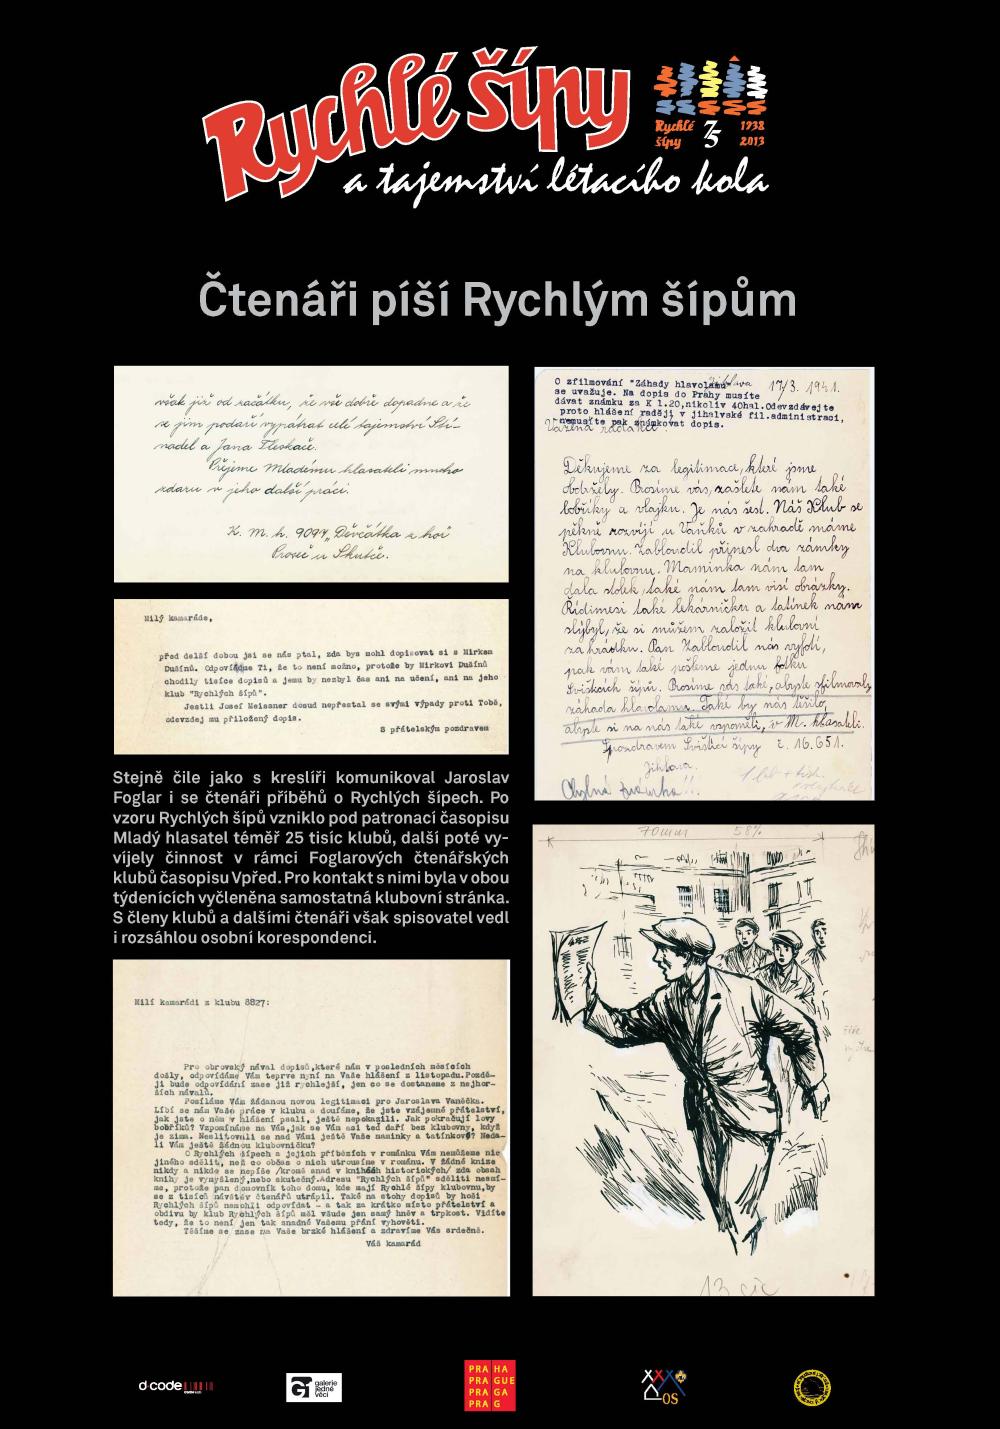 Rychlé šípy
Rychlé
šípy
75
1938
2013
a tajemství létacího kola
Čtenáři píší Rychlým šípům
však již od začátku, že vše dobře dopadne a že
se jim podaří vypátrat celé tajemství Stí-
nadel a Jana Tleskače.
Přejeme Mladému hlasateli mnoho
zdaru v jeho další práci.
K. M. h. 9097 „Děvčátka z hor
Proseč u Skutče.
Milý kamaráde,
před delší dobou jsi se nás ptal, zda bys mohl dopisovat si s Mirkem
Dušínů. Odpovídáme Ti, že to není možno, protože by Mirkovi Dušínů
chodily tisíce dopisů a jemu by nezbyl čas ani na učení, ani na jeho
klub "Rychlých šípů".
Jestli Josef Meissner dosud nepřestal se svými výpady proti Tobě,
odevzdej mu přiložený dopis.
S přátelským pozdravem
Stejně čile jako s kreslíři komunikoval Jaroslav
Foglar i se čtenáři příběhů o Rychlých šípech. Po
vzoru Rychlých šípů vzniklo pod patronací časopisu
Mladý hlasatel téměř 25 tisíc klubů, další poté vy-
víjely činnost v rámci Foglarových čtenářských
klubů časopisu Vpřed. Pro kontakt s nimi byla v obou
týdenících vyčleněna samostatná klubovní stránka.
S členy klubů a dalšími čtenáři však spisovatel vedl
i rozsáhlou osobní korespondenci.
Milí kamarádi z klubu 8827:
Pro obrovský nával dopisů,které nám v posledních měsících
došly, odpovídáme Vám teprve nyní na Vaše hlášení z listopadu.Pozdě-
ji bude odpovídání zase již rychlejší, jen co se dostaneme z nejhor-
ších návalů.
Posíláme Vám žádanou novou legitimaci pro Jaroslava Vaněčka.
Líbí se nám Vaše práce v klubu a doufáme, že jste vzájemné přátelství,
jak jste o něm v hlášení psali, ještě nepokazili. Jak pokračují lovy
bobříků? Vzpomínáme na Vás,jak se Vám asi teď daří bez klubovny, když
je zima. Neslitovali se nad Vámi ještě Vaše maminky a tatínkové? Neda-
li Vám ještě žádnou klubovničku?
O Rychlých šípech a jejich příbězích v románku Vám nemůžeme nic
jiného sdělit, než co občas o nich utrousíme v románu. V žádné knize
nikdy a nikde se nepíše /kromě snad v knihách historických/ zda obsah
knihy je vymyšlený,nebo skutečný.Adresu "Rychlých šípů" sděliti nesmí-
me, protože pan domovník toho domu, kde mají Rychlé šípy klubovnu,by
se z tisíců návštěv čtenářů utrápil. Také na stohy dopisů by hoši
Rychlých šípů nemohli odpovídat - a tak za krátko místo přátelství a
obdivu by klub Rychlých šípů měl všude jen samý hněv a trpkost. Vidíte
tedy, že to není jen tak snadné Vašemu přání vyhověti.
Těšíme se zase na Vaše brzké hlášení a zdravíme Vás srdečně.
Váš kamarád
Jihlava 17/3. 1941.
O zfilmování "Záhady hlavolamu"
se uvažuje. Na dopis do Prahy musíte
dávat známku za K 1.20,nikoliv 40hal.Odevzdávejte
proto hlášení raději v jihalvské fil.administraci,
nemusíte pak známkovat dopis.
Vážená redakce
Děkujeme za legitimace, které jsme
obdržely. Prosíme vás, zašlete nám také
bobříky a vlajku. Je nás šest. Náš Klub se
pěkně rozvíjí u Vaňků v zahradě máme
Klubovnu. Zabloudil přinesl dva zámky
na klubovnu. Maminka nám tam
dala stolek, také nám tam visí obrázky.
Řídímesi také lekárničku a tatínek nám
slýbyl, že si můžem založit klubovní
zahrádku. Pan Zabloudil nás vyfotí,
pak vám také pošleme jednu fotku
Svišťích šípů. Prosíme vás také, abyste zfilmovaly
záhada hlavolamu. Také by nás těšilo,
abyste si na nás také vzpoměli, v M. hlasateli.
S pozdravem Svišťící šípy č. 16.651.
Jihlava.
70mm 58%
13 cic
d-code
galerie
jedné
věci
PRA HA
PRA GUE
PRA GA
PRA G
OS